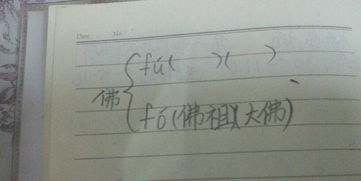 Date No.
佛
fú( )( )
fó(佛祖)(大佛)